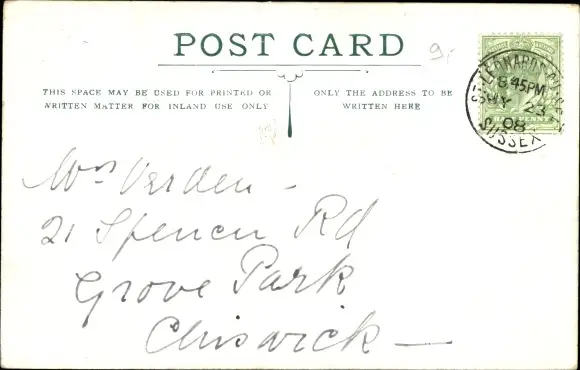 POST CARD
9,-
THIS SPACE MAY BE USED FOR PRINTED OR
WRITTEN MATTER FOR INLAND USE ONLY
ONLY THE ADDRESS TO BE
WRITTEN HERE
ST LEONARDS
8 45PM
23
08
SUSSEX
HALFPENNY
Mrs Verden -
21 Spencer Rd
Grove Park
Chiswick —